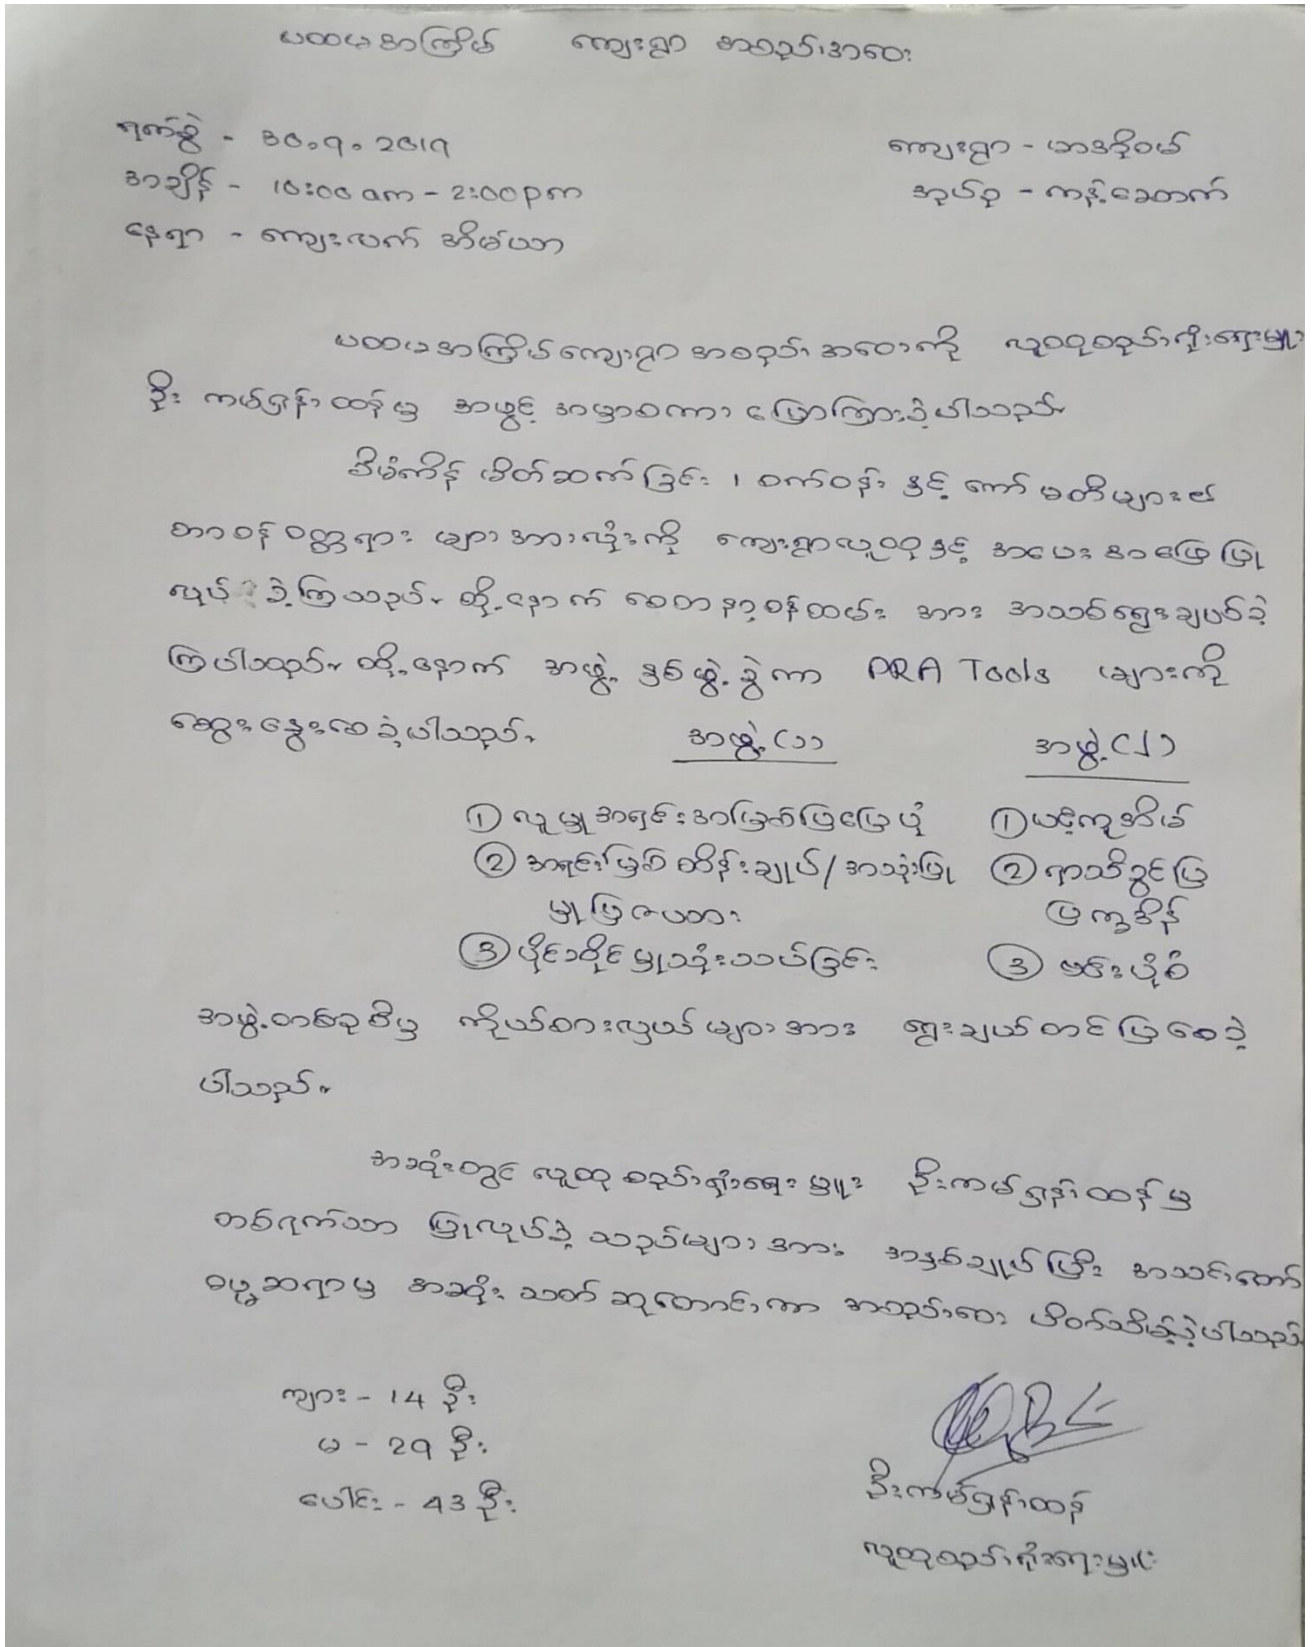 ပထမအကြိမ် ကျေးရွာ အစည်းအဝေး
ရက်စွဲ - 30.9.2019 ကျေးရွာ - ဟဒိုဝမ်
အချိန် - 10:00 am - 2:00pm အုပ်စု - ကန့်ဆောက်
နေရာ - ကျေးလက် အိမ်ယာ
ပထမအကြိမ်ကျေးရွာ အစည်း အဝေးကို လူထုစည်းရုံးရေးမှူး
ဦး ကမ်ရှန်းထန်မှ အဖွင့် အမှာစကား ပြောကြားခဲ့ပါသည်။
စီမံကိန်း မိတ်ဆက်ခြင်း ၊ စက်ဝန်း နှင့် ကော်မတီများ၏
တာဝန် ဝတ္တရား များအားလုံးကို ကျေးရွာလူထုနှင့် အမေး အဖြေ ပြု
လုပ် ခဲ့ကြသည်။ ထို့နောက် စေတနာ့ဝန်ထမ်း အား အသစ်ရွေးချယ်ခဲ့
ကြပါသည်။ ထို့နောက် အဖွဲ့ နှစ်ဖွဲ့ ခွဲကာ PRA Tools များကို
ဆွေးနွေးစေခဲ့ပါသည်။ အဖွဲ့ (၁) အဖွဲ့ (၂)
① လူမှုအရင်းအမြစ်ပြမြေပုံ ① ပင့်ကူအိမ်
② အရင်းမြစ် ထိန်းချုပ်/အသုံးပြု ② ရာသီခွင်ပြ
မှုပြဇယား ပြက္ခဒိန်
③ ပိုင်းဝိုင်မှုသုံးသပ်ခြင်း ③ ဗင်းပုံစံ
အဖွဲ့တစ်ခုစီမှ ကိုယ်စားလှယ်များအား ရွေးချယ်တင်ပြစေခဲ့
ပါသည်။
အဆုံးတွင် လူထုစည်းရုံးရေးမှူး ဦးကမ်ရှန်းထန်မှ
တစ်ရက်တာ ပြုလုပ်ခဲ့သည်များအား အနှစ်ချုပ်ပြီး အသင်းတော်
ဓမ္မဆရာမှ အဆုံးသတ်ဆုတောင်းကာ အစည်းဝေး ပိတ်သိမ်းခဲ့ပါသည်
ကျား - 14 ဦး
မ - 29 ဦး
ပေါင်း - 43 ဦး
ဦးကမ်ရှန်းထန်
လူထုစည်းရုံးရေးမှူး